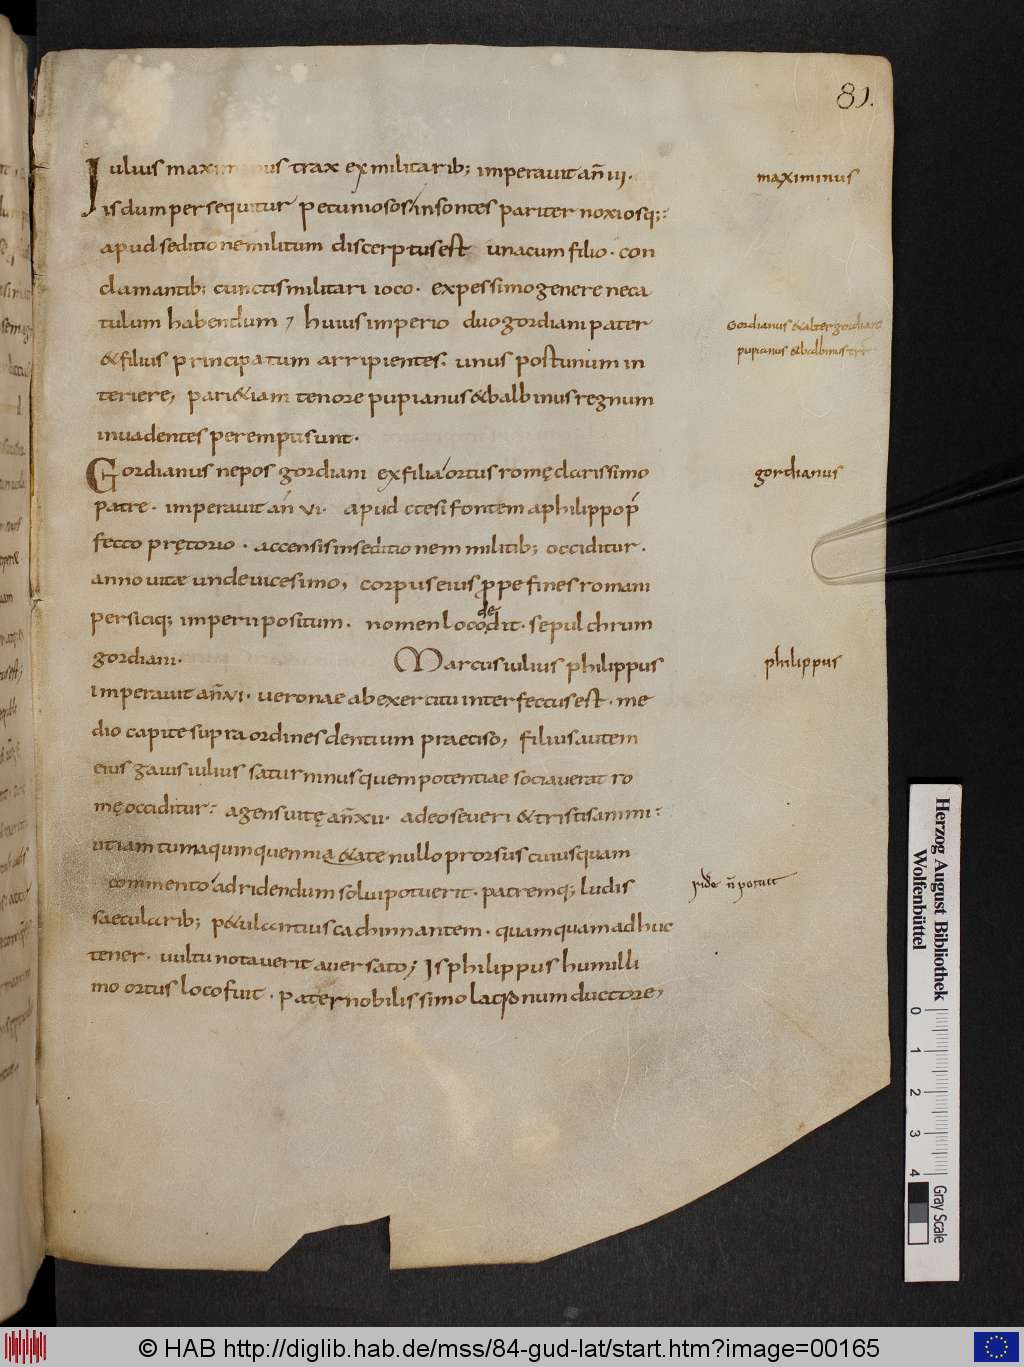 81.
Iulius maximinus trax ex militarib; imperavit añ iii.
is dum persequitur pecuniosos insontes pariter noxiosq;:
apud seditione militum discerptus est una cum filio. con
clamantib; cunctis militari ioco. ex pessimo genere neca
tulum habendum, huius imperio duo gordiani pater
& filius principatum arripientes. unus post unum in
teriere, pari & iam tenore pupianus & balbinus regnum
invadentes perempti sunt.
Gordianus nepos gordiani ex filia ortus romę clarissimo
patre. imperavit añ vi. apud ctesifontem a philippo p̄
fecto pretorio. accensis in seditionem militib; occiditur.
anno vitæ undevicesimo, corpus eius ꝓpe fines romani
persiciq; imperii positum. nomen loco dedit. sepulchrum
gordiani. Marcus iulius philippus
imperavit añ vi. veronae ab exercitu interfectus est. me
dio capite supra ordines dentium praeciso, filius autem
eius gaius iulius saturninus quem potentiae sociaverat ro
mę occiditur: agens vitę añ xii. adeo severi & tristis animi:
ut iam tum a quinquennia &ate nullo prorsus cuiusquam
commento ad ridendum solvi potuerit. patremq; ludis
saecularib; p&ulantius cachinnantem. quamquam adhuc
tener. vultu notaverit aversato; Is philippus humilli
mo ortus loco fuit. patre nobilissimo latronum ductore,
maximinus
Gordianus & alter gordianus
pupianus & balbinus
gordianus
philippus
ridẽ ñ potuit
Herzog August Bibliothek
Wolfenbüttel
0 1 2 3 4
Gray Scale
© HAB http://diglib.hab.de/mss/84-gud-lat/start.htm?image=00165